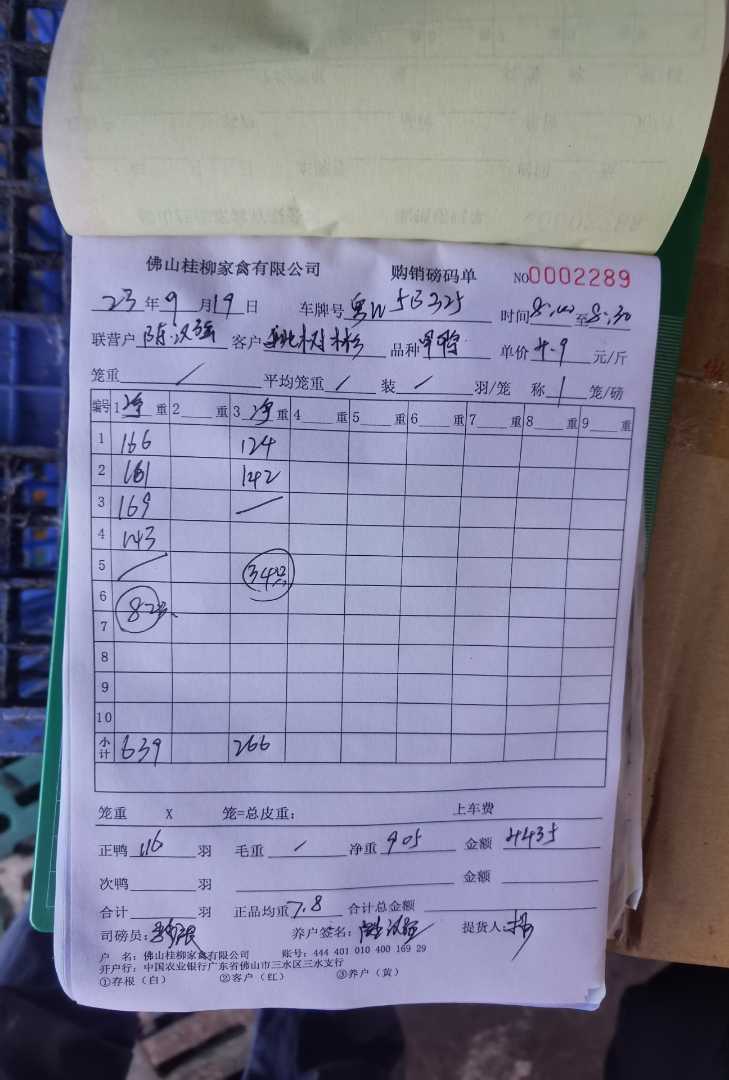 佛山桂柳家禽有限公司 购销磅码单 NO0002289
23年9月19日 车牌号 粤W5B325 时间8:00至8:30
联营户 陈汉强 客户 树彬 品种 单价4.9元/斤
笼重 / 平均笼重 / 装 / 羽/笼 称 1 笼/磅
编号 1 净 重 2 重 3 净 重 4 重 5 重 6 重 7 重 8 重 9 重
1 166 124
2 161 142
3 169 /
4 143
5 / 34只
6 82只
7
8
9
10
小计 639 266
笼重 X 笼=总皮重: 上车费
正鸭 116 羽 毛重 / 净重 905 金额 4435
次鸭 羽 金额
合计 羽 正品均重 7.8 合计总金额
司磅员: 养户签名: 提货人:
户 名: 佛山桂柳家禽有限公司 账号: 444 401 010 400 169 29
开户行: 中国农业银行广东省佛山市三水区三水支行
①存根(白) ②客户(红) ③养户(黄)